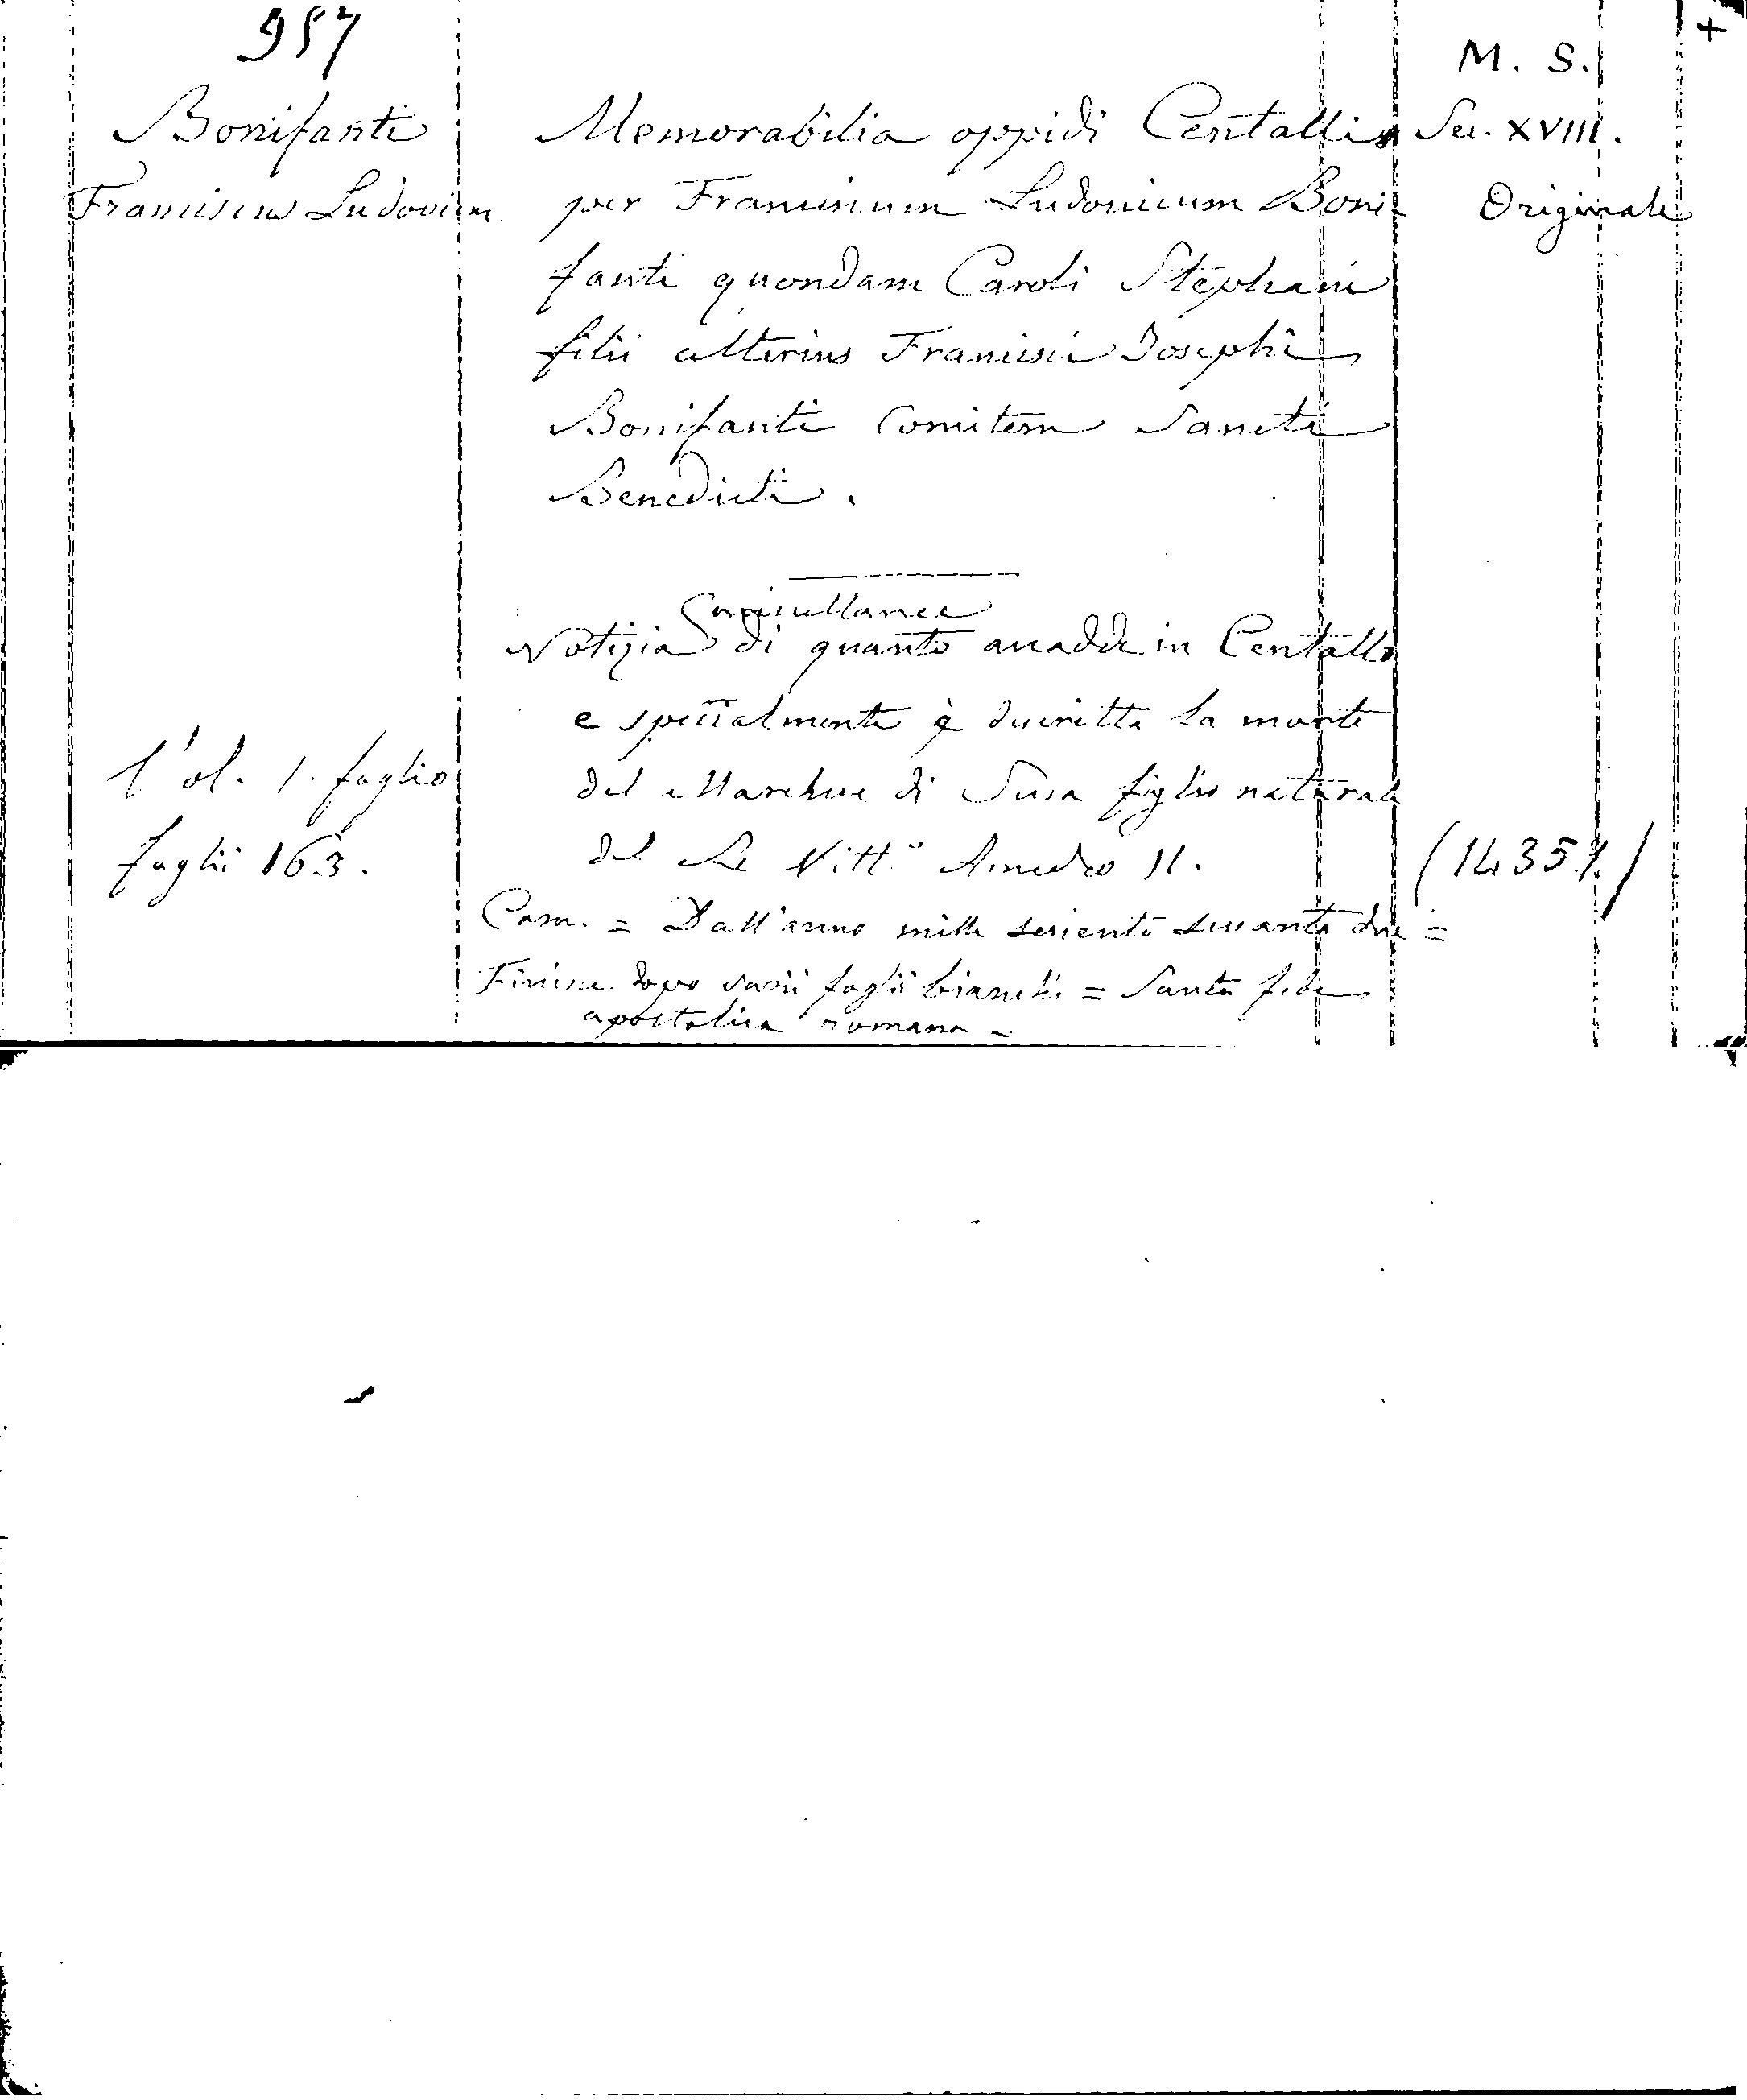 957
+
M. S.
Bonifanti
Franciscus Ludovicus
Memorabilia oppidi Centalli
per Franciscum Ludovicum Boni-
fanti quondam Caroli Stephani
filii alterius Francisci Josephi
Bonifanti Comitem Sancti
Benedicti.
Sec. XVIII.
Originale
miscellanee
Notizia di quanto accadde in Centallo
e specialmente è descritta la morte
del Marchese di Susa figlio naturale
del Re Vitt.º Amedeo II.
Com. = Dall'anno mille seicento sessanta due =
Finisce dopo varii foglii bianchi = Santa fede
apostolica romana =
Vol. 1. foglio
foglii 163.
(14351)